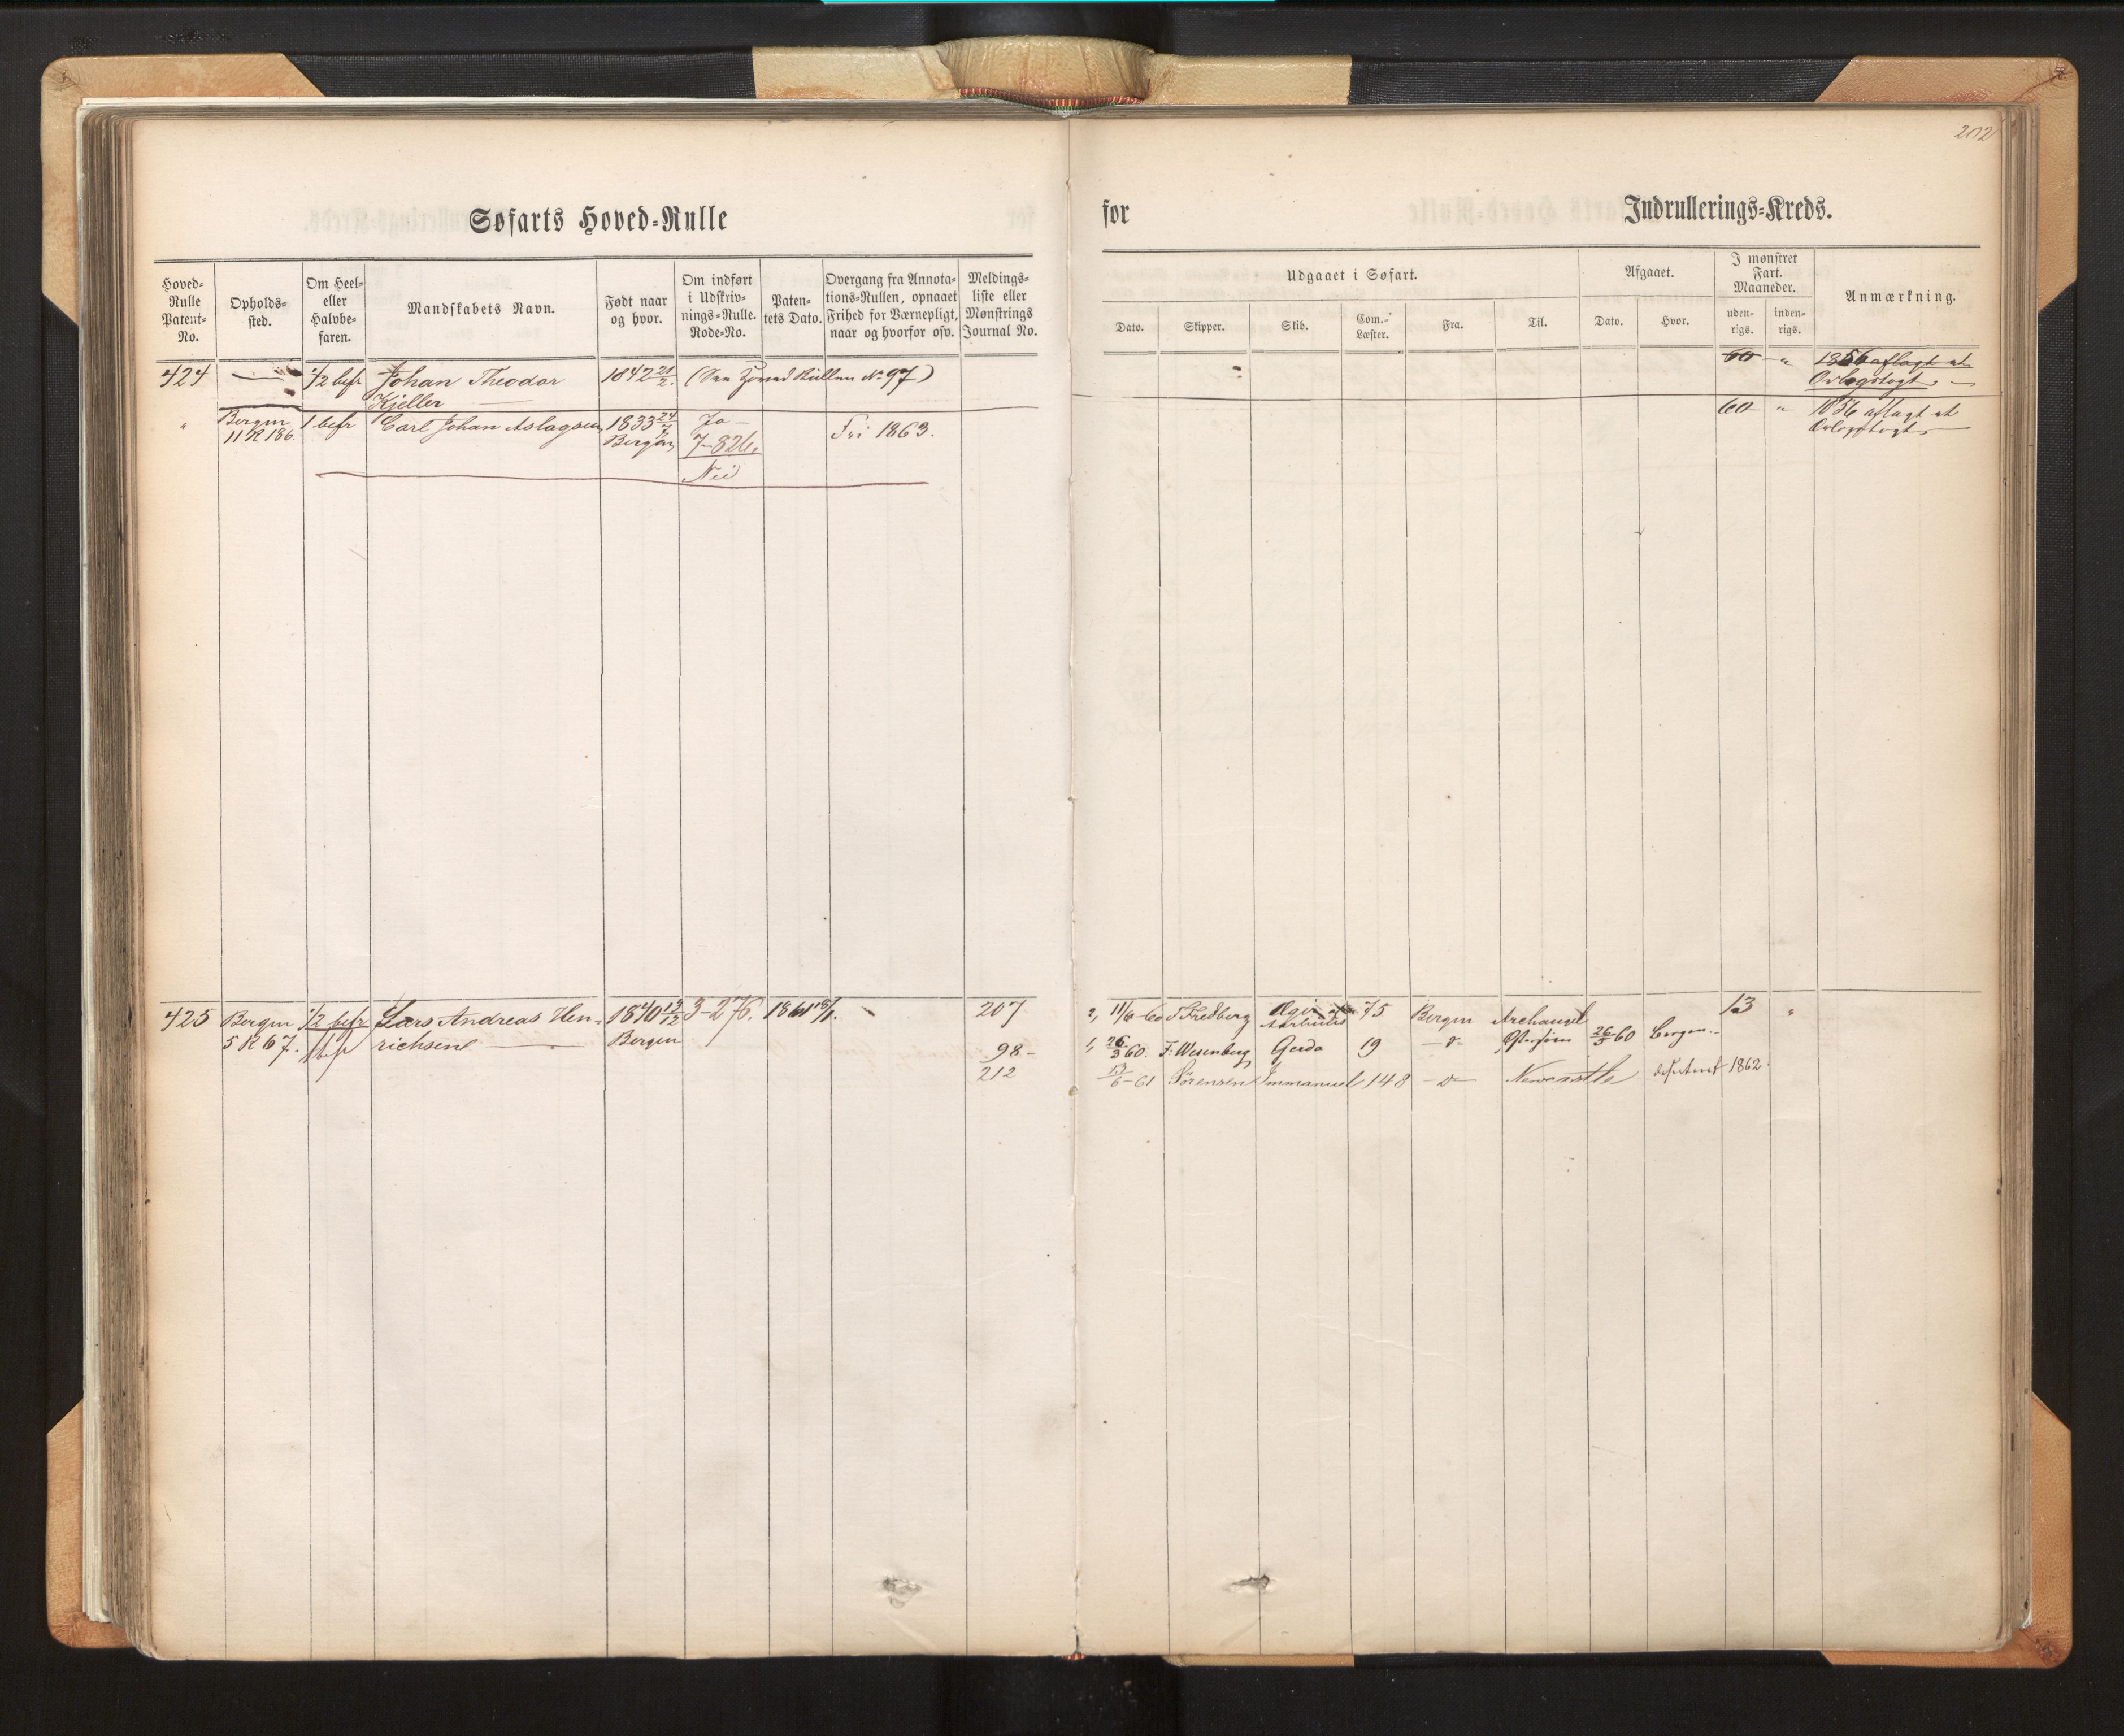 202
Søfarts Hoved-Rulle
for Indrullerings-Kreds.
Hoved-Rulle Patent-No.
Opholds-sted.
Om Heel- eller Halvbe-faren.
Mandskabets Navn.
Født naar og hvor.
Om indført i Udskriv-nings-Rulle. Rode-No.
Paten-tets Dato.
Overgang fra Annota-tions-Rullen, opnaaet Frihed for Værnepligt, naar og hvorfor osv.
Meldings-liste eller Mønstrings Journal No.
Udgaaet i Søfart.
Dato. Skipper. Skib. Com.-Læster. Fra. Til.
Afgaaet.
Dato. Hvor.
I mønstret Fart. Maaneder.
uden-rigs. inden-rigs.
Anmærkning.
424 — 1/2 befr Johan Theodor 1842 21/2. (See Hoved Rullen No 97) 60 " 1856 aflagt et
Kjeller — Orlogstogt. —
" Bergen 1 befr Carl Johan Aslagsen 1833 24/7 Ja — Fri 1863. 60 " 1856 aflagt et
11 R 186 Bergen 7-826. Orlogstogt. —
Nei
425 Bergen 1/2 befr Lars Andreas Hen- 1840 13/12 3-276. 1861 18/1. " 207 2, 11/6-60 Fredberg 75 Bergen Archangel 13 "
5 R 67. 1 bef richsen — Bergen 98- 1, 26/3 60. F: Wesenberg Gerda 19 — d — 26/5 60 Bergen
212 13/6-61 Sörensen Immanuel 148 — d — Newcastle 1862.